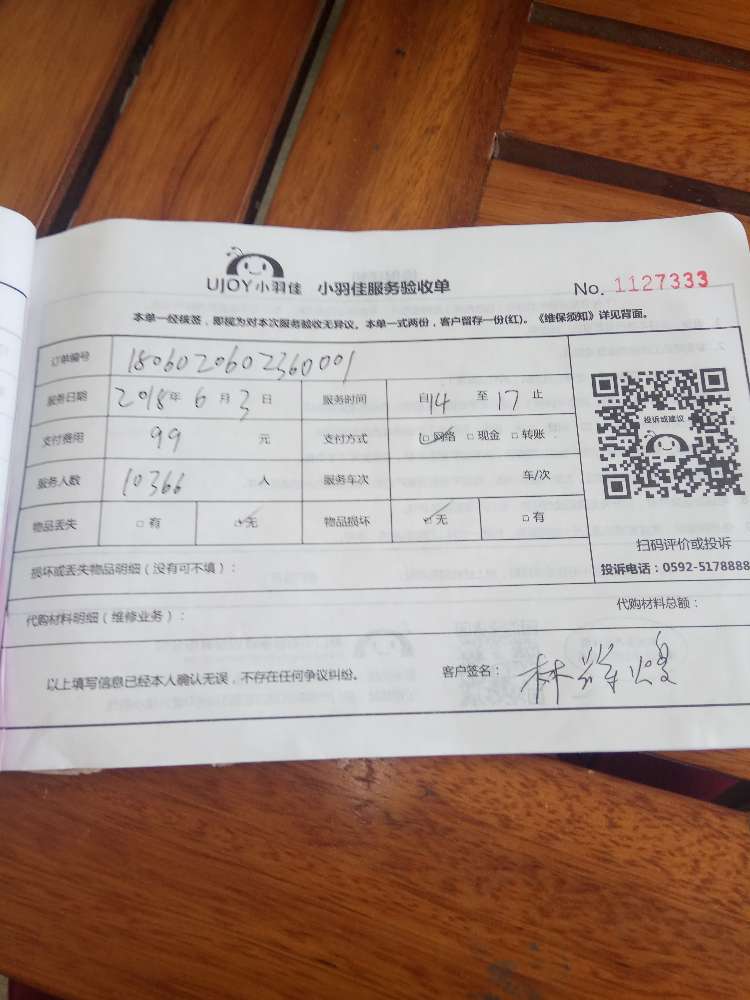 UJOY小羽佳 小羽佳服务验收单 No. 1127333
本单一经核签，即视为对本次服务验收无异议。本单一式两份，客户留存一份(红)。《维保须知》详见背面。
订单编号 1806020602360001
服务日期 2018年 6 月 3 日 服务时间 自14 至 17 止
支付费用 99 元 支付方式 ☑网络 □现金 □转账
服务人数 10366 人 服务车次 车/次
物品丢失 □有 ☑无 物品损坏 ☑无 □有
投诉或建议
扫码评价或投诉
投诉电话：0592-5178888
损坏或丢失物品明细（没有可不填）：
代购材料明细（维修业务）： 代购材料总额：
以上填写信息已经本人确认无误，不存在任何争议纠纷。 客户签名： 林